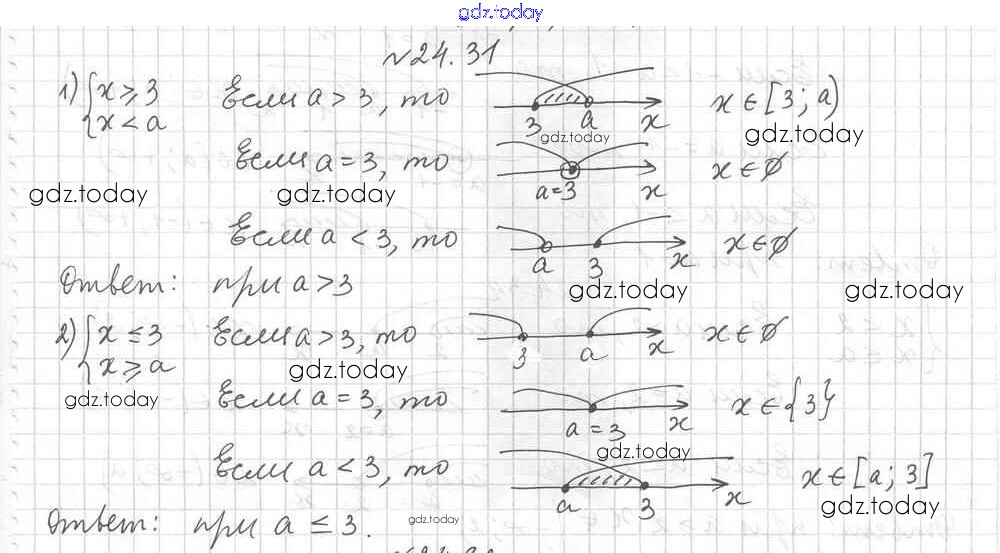 gdz.today
№24.31
1) { x ≥ 3 Если a > 3, то 3 a x x ∈ [3; a)
{ x < a gdz.today gdz.today
Если a = 3, то a = 3 x x ∈ ∅
gdz.today gdz.today
Если a < 3, то a 3 x x ∈ ∅
Ответ: при a > 3 gdz.today gdz.today
2) { x ≤ 3 Если a > 3, то 3 a x x ∈ ∅
{ x ≥ a gdz.today
gdz.today Если a = 3, то a = 3 x x ∈ {3}
gdz.today
Если a < 3, то a 3 x x ∈ [a; 3]
gdz.today
Ответ: при a ≤ 3. gdz.today